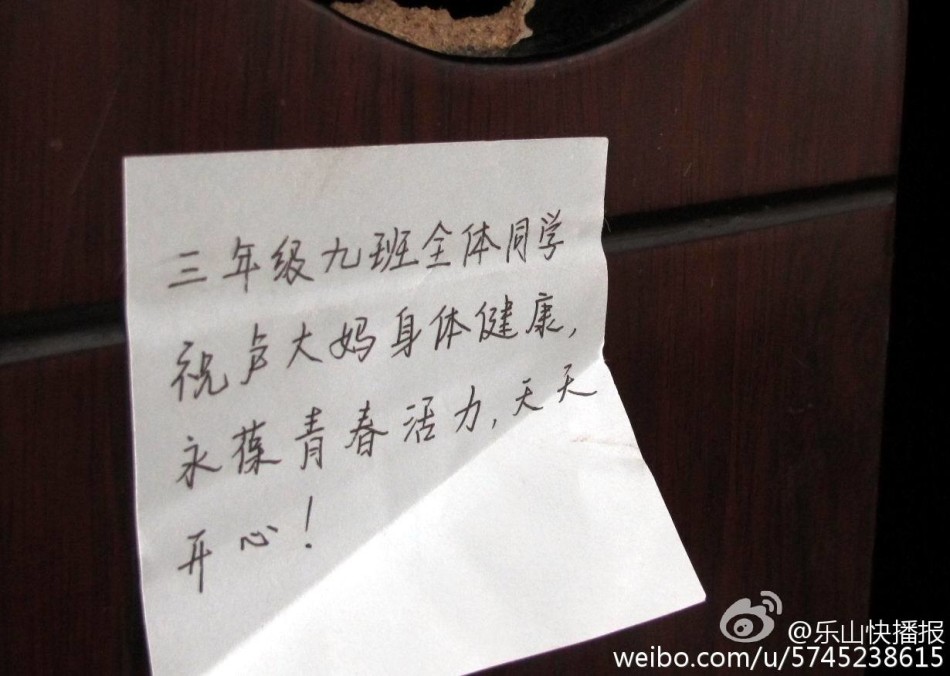 三年级九班全体同学
祝卢大妈身体健康,
永葆青春活力,天天
开心!
@乐山快播报
weibo.com/u/5745238615